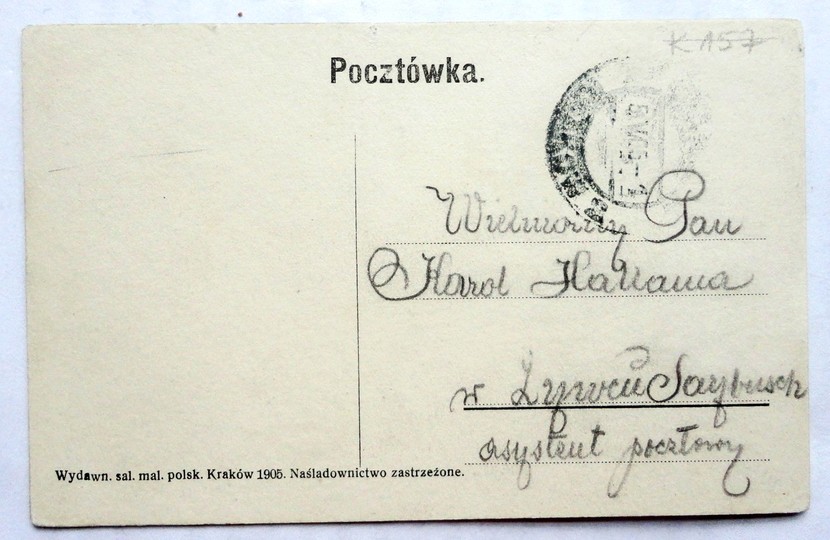 K 157
Pocztówka.
Wielmożny Pan
Karol
w Żywcu Saybusch
asystent pocztowy
Wydawn. sal. mal. polsk. Kraków 1905. Naśladownictwo zastrzeżone.